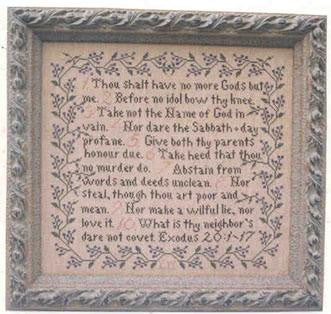 1 Thou shalt have no more Gods but
me. 2 Before no idol bow thy knee.
3 Take not the Name of God in
vain. 4 Nor dare the Sabbath-day
profane. 5 Give both thy parents
honour due. 6 Take heed that thou
no murder do. 7 Abstain from
words and deeds unclean. 8 Nor
steal, though thou art poor and
mean. 9 Nor make a wilful lie, nor
love it. 10 What is thy neighbor's
dare not covet. Exodus 20:1-17